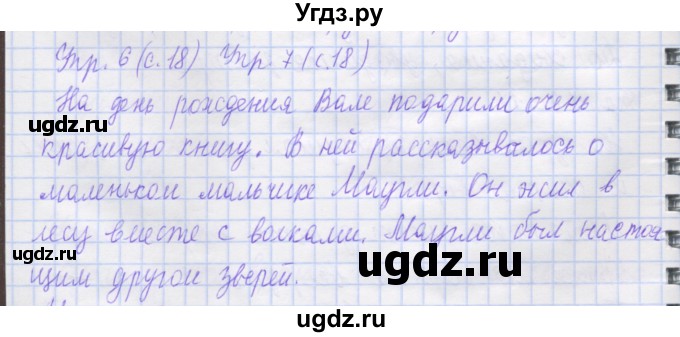 Угдз.ру
Упр. 6 (с.18) Упр. 7 (с.18)
На день рождения Вале подарили очень
ugdz.ru ugdz.ru
красивую книгу. В ней рассказывалось о
маленьком мальчике Маугли. Он жил в
лесу вместе с волками. Маугли был настоя
щим другом зверей.
ugdz.ru ugdz.ru
ugdz.ru ugdz.ru
ugdz.ru
Угдз.ру